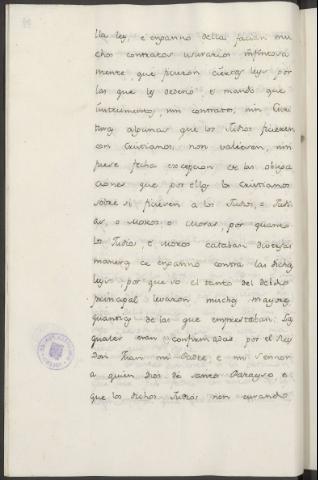 lla ley, e enganno della facian mu
chos contratos usurarios infintosa
mente que ficieron ciertas leys por
las que les defendió, e mandó que
instrumentos, nin contratos, nin Escri
turas algunas que los Judios ficieren
con Cristianos, non valiesen, nin
fuese fecha excepcion de las obliga
ciones que por ellos los Cristianos
sobre si ficieren a los Judios, o Judi
as, o Moros o Moras, por quanto
los Judios, e Moros cataban diversas
maneras de enganno contra las dichas
leyis por que so el tanto del debdo
principal levaron muchas mayores
quantias de las que emprestaban: Las
quales eran confirmadas por el Rey
Don Juan mi Padre, e mi Sennor
a quien Dios dé santo Parayso e
que los dichos Judios non curando